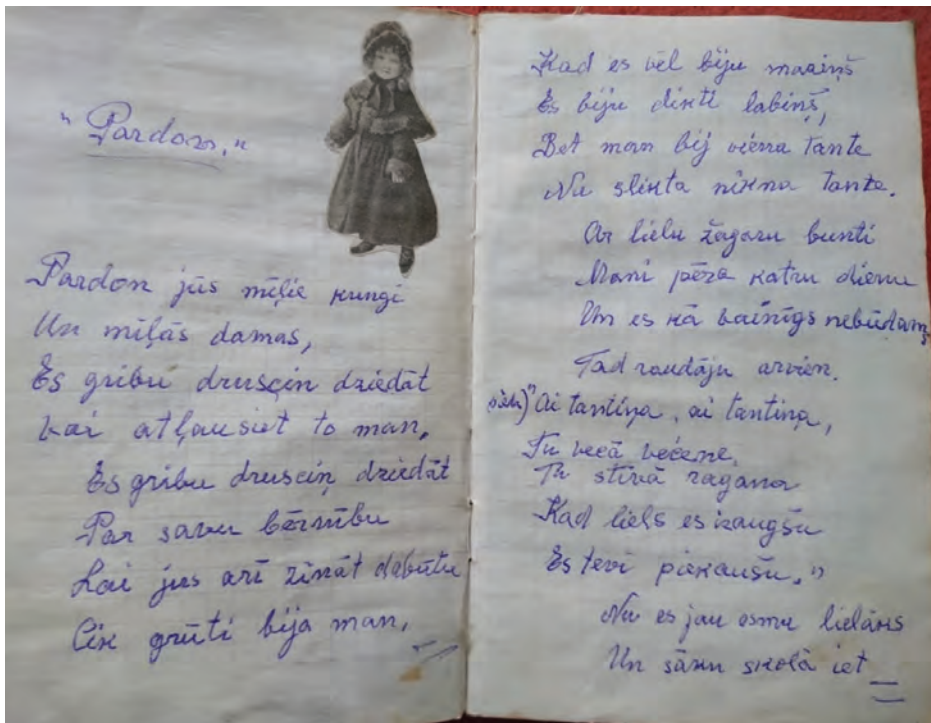 "Pardon."
Pardon jūs mīļie kungi
Un mīļās damas,
Es gribu drusciņ dziedāt
Vai atļausiet to man,
Es gribu drusciņ dziedāt
Par savu bērnību
Lai jus arī zināt dabūtu
Cik grūti bija man,
Kad es vēl biju maziņš
Es biju dikti labiņš,
Bet man bij viena tante
Nu slikta nikna tante.
Ar lielu žagaru bunti
Mani pēra katru dienu
Un es kā vainīgs nebūdams
Tad raudāju arvien.
"Ai tantiņa, ai tantiņa,
Tu vecā večene,
Tu stīvā ragana
Kad liels es izaugšu
Es tevi piekaušu."
Nu es jau esmu lielāks
Un sāku skolā iet